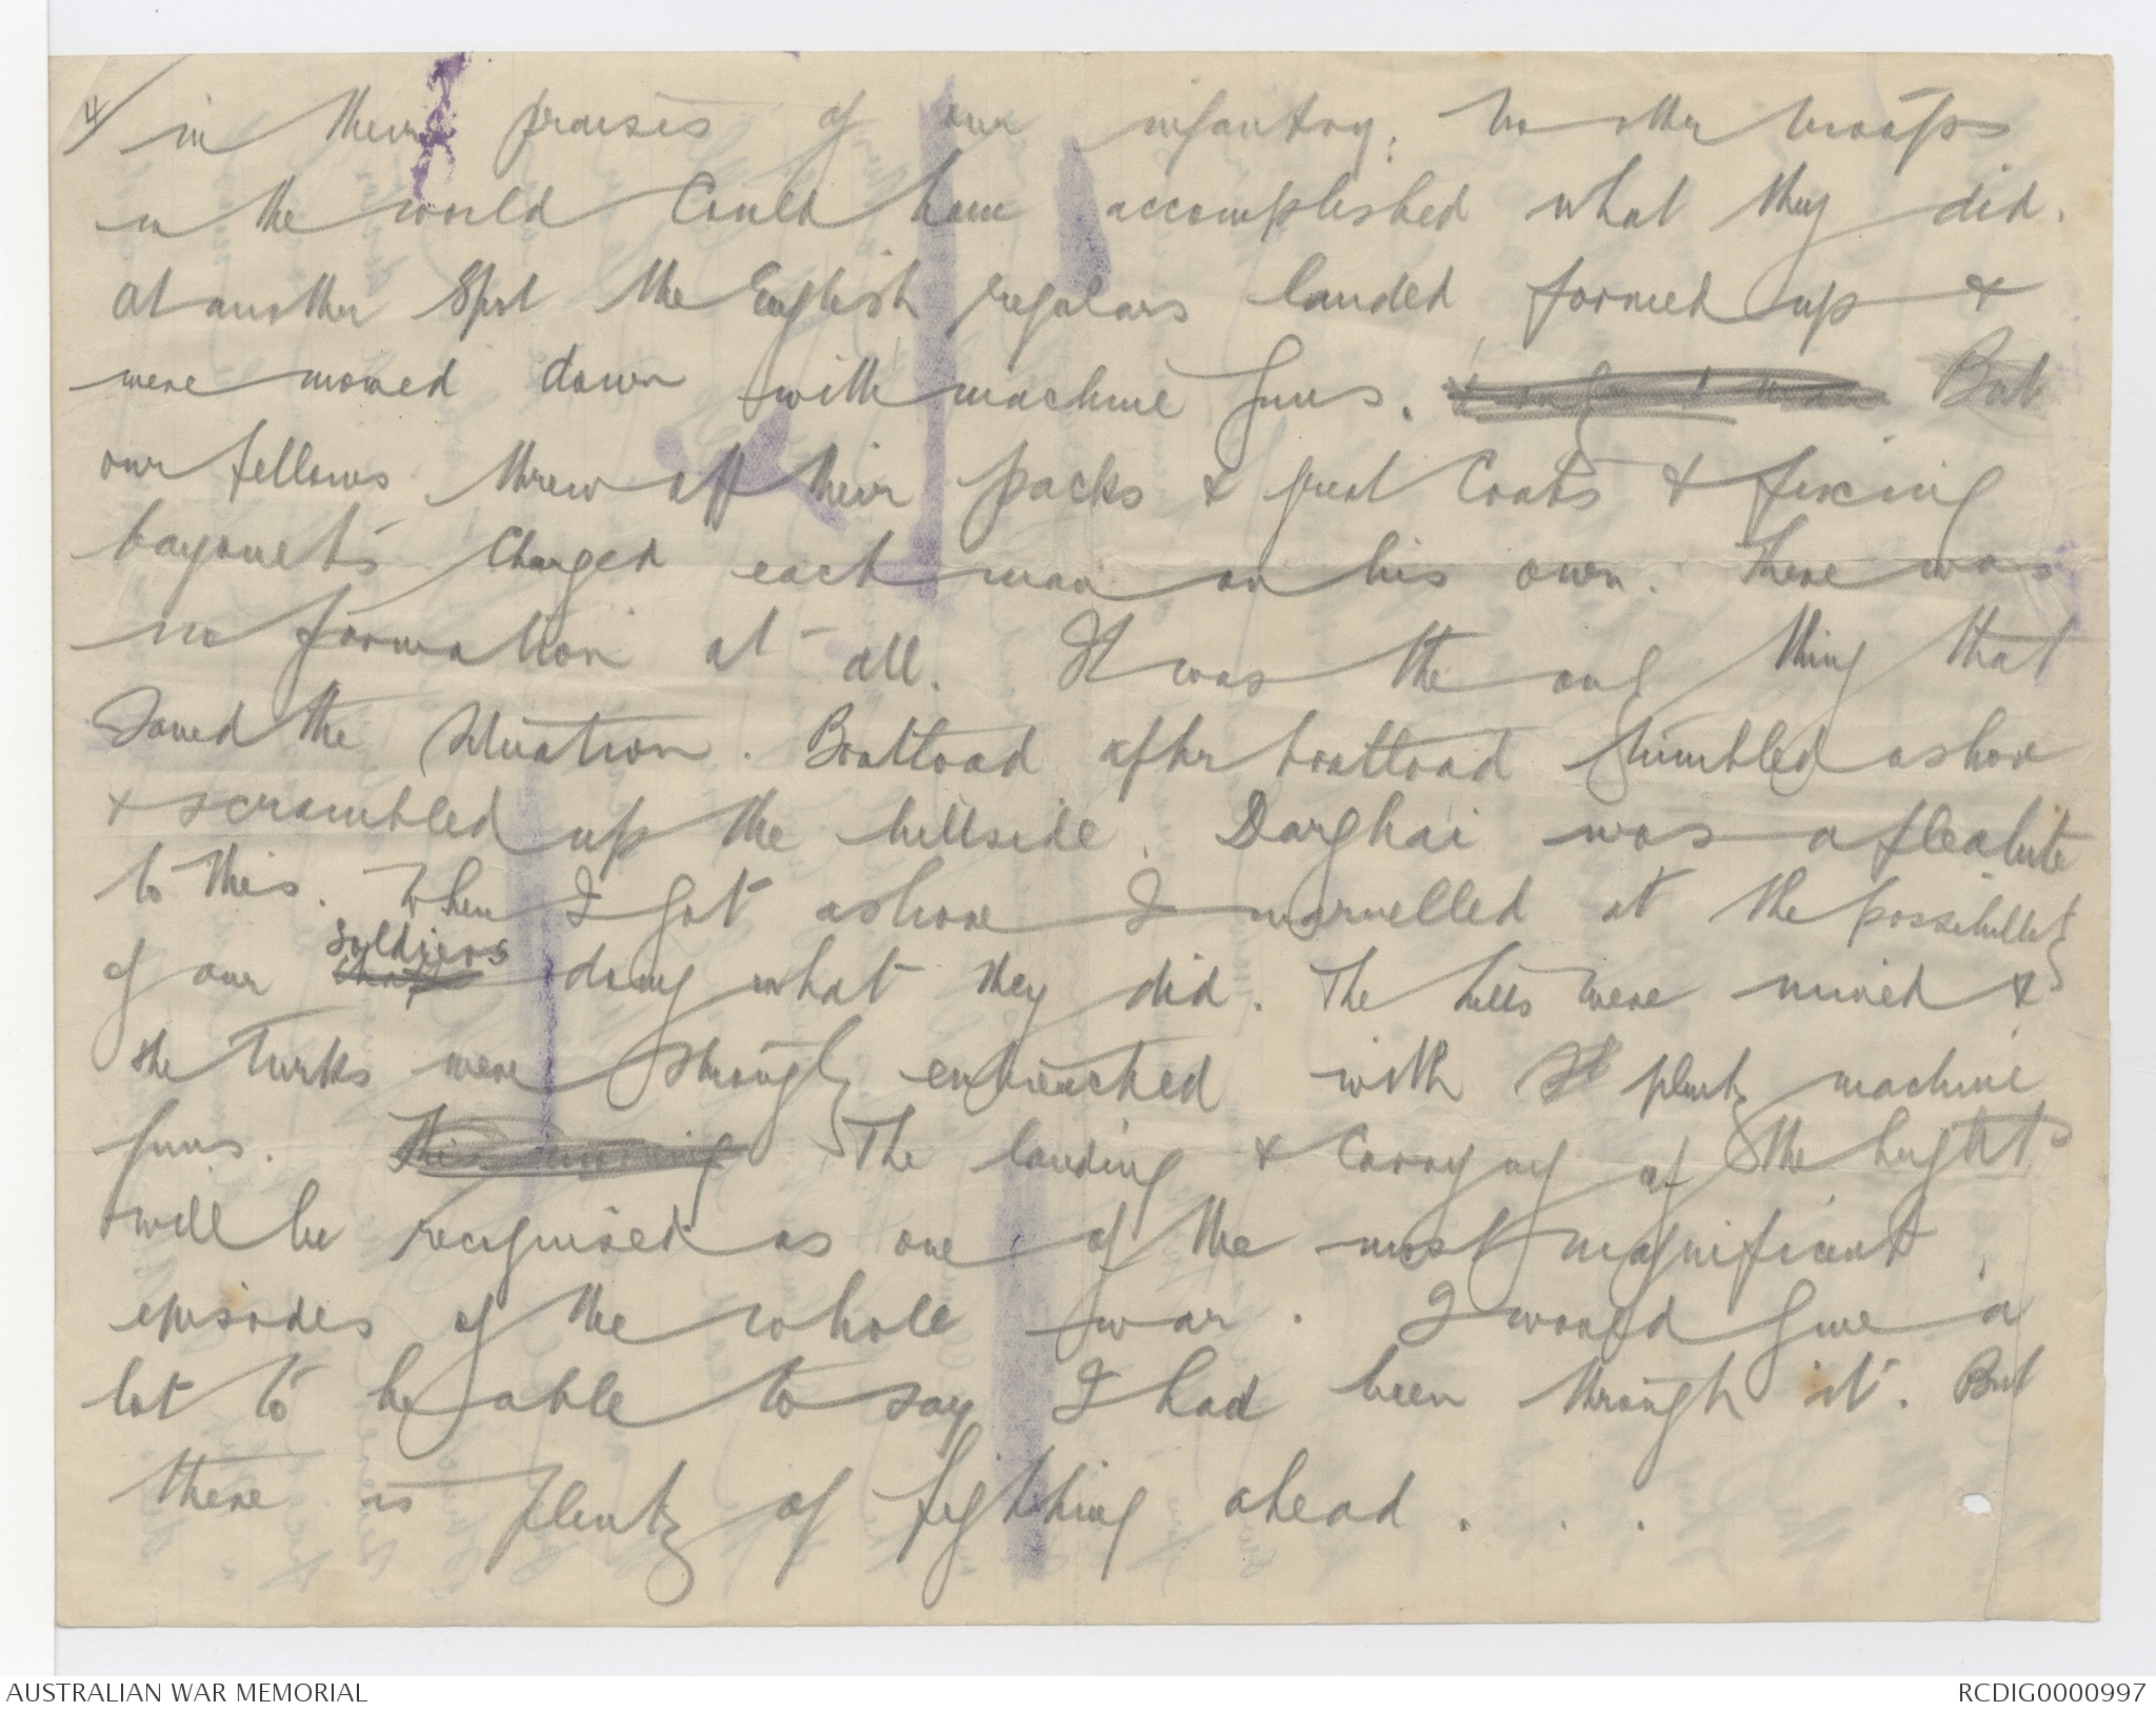 4/ in their praises of our infantry: No other troops
in the world Could have accomplished what they did.
At another Spot the English regulars landed formed up &
were mowed down with machine guns. But
our fellows threw off their packs & great Coats & fixing
bayonets Charged each man on his own. There was
no formation at all. It was the only thing that
Saved the Situation. Boatload after boatload tumbled ashore
& scrambled up the hillside. Darghai was a fleabite
to this. When I got ashore I marvelled at the possibility
of our soldiers doing what they did. The hills were mined &
the Turks were strongly entrenched with plenty machine
guns. The landing & Carrying of the heights
will be recognised as one of the most magnificent
episodes of the whole war. I would give a
lot to be able to say I had been through it. But
there is plenty of fighting ahead . . .
AUSTRALIAN WAR MEMORIAL
RCDIG0000997